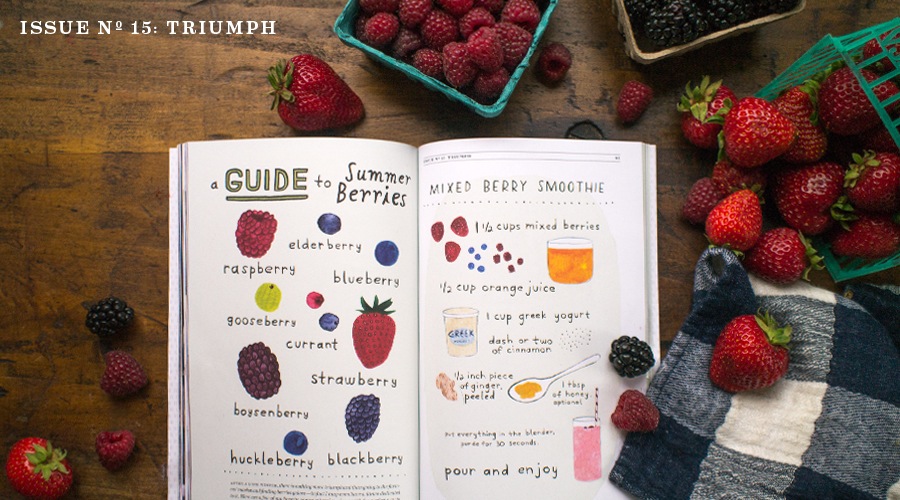 ISSUE Nº 15: TRIUMPH
a GUIDE to Summer Berries
raspberry
elderberry
blueberry
gooseberry
currant
strawberry
boysenberry
blackberry
huckleberry
MIXED BERRY SMOOTHIE
1 1/2 cups mixed berries
1/2 cup orange juice
1 cup greek yogurt
GREEK
dash or two
of cinnamon
1/2 inch piece
of ginger,
peeled
1 tbsp
of honey,
optional
put everything in the blender,
puree for 30 seconds.
pour and enjoy